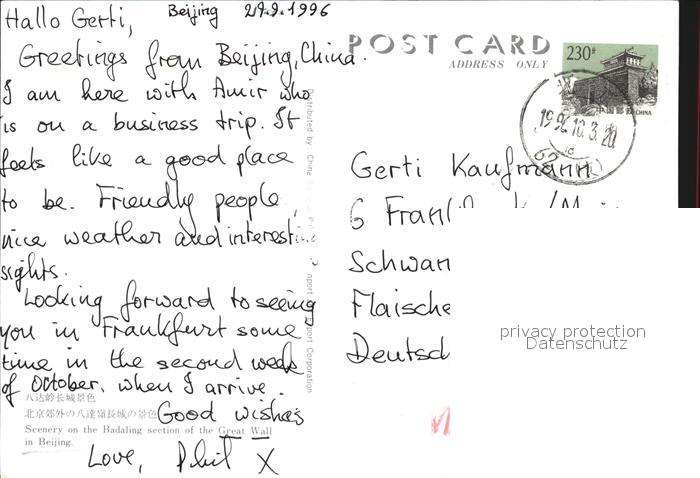 Hallo Gerti,
Beijing 29.9.1996
Greetings from Beijing, China.
I am here with Amir who
is on a business trip. It
feels like a good place
to be. Friendly people,
nice weather and interesting
sights.
Looking forward to seeing
you in Frankfurt some
time in the second week
of October, when I arrive.
Good wishes
Love, Phil X
八达岭长城景色
北京郊外の八達嶺長城の景色
Scenery on the Badaling section of the Great Wall
in Beijing.
Distributed by: China
Import Export Corporation
POST CARD
ADDRESS ONLY
230
中国邮政 CHINA
1996.10.3.20
Gerti Kaufmann
6
Schwan
Flaische
Deutsch
privacy protection
Datenschutz